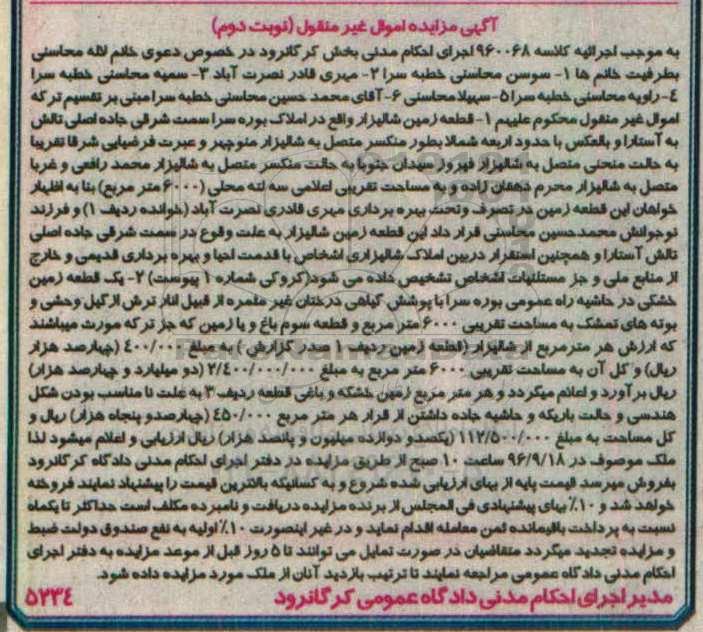 آگهی مزایده اموال غیر منقول (نوبت دوم)
به موجب اجرائیه کلاسه ۹۶۰۰۶۸ اجرای احکام مدنی بخش کرگانرود در خصوص دعوی خانم لاله محاسنی
بطرفیت خانم ها ۱- سوسن محاسنی خطبه سرا ۲- مهری قادر نصرت آباد ۳- سمیه محاسنی خطبه سرا
۴- راویه محاسنی خطبه سرا ۵- سهیلا محاسنی ۶- آقای محمد حسین محاسنی خطبه سرا مبنی بر تقسیم ترکه
اموال غیر منقول محکوم علیهم ۱- قطعه زمین شالیزار واقع در املاک بوره سرا سمت شرقی جاده اصلی تالش
به آستارا و بالعکس با حدود اربعه شمالا بطور منکسر متصل به شالیزار منوچهر و عبرت فرضیایی شرقا تقریبا
به حالت منحنی متصل به شالیزار فهروز سیدان جنوبا به حالت منکسر متصل به شالیزار محمد رافعی و غربا
متصل به شالیزار محرم دهقان زاده و به مساحت تقریبی اعلامی سه لته محلی (۶۰۰۰ متر مربع) بنا به اظهار
خواهان این قطعه زمین در تصرف وتحت بهره برداری مهری قادری نصرت آباد (خوانده ردیف ۱) و فرزند
نوجوانش محمدحسین محاسنی قرار داد این قطعه زمین شالیزار به علت وقوع در سمت شرقی جاده اصلی
تالش آستارا و همچنین استقرار دربین املاک شالیزاری اشخاص با قدمت احیا و بهره برداری قدیمی و خارج
از منابع ملی و جز مستثنیات اشخاص تشخیص داده می شود(کروکی شماره ۱ پیوست) ۲- یک قطعه زمین
خشکی در حاشیه راه عمومی بوره سرا با پوشش گیاهی درختان غیر مثمره از قبیل انار ترش ازگیل وحشی و
بوته های تمشک به مساحت تقریبی ۶۰۰۰ متر مربع و قطعه سوم باغ و یا زمین که جز ترکه مورث میباشند
که ارزش هر مترمربع از شالیزار (قطعه زمین ردیف ۱ صدر گزارش ) به مبلغ ۴۰۰/۰۰۰ (چهارصد هزار
ریال) و کل آن به مساحت تقریبی ۶۰۰۰ متر مربع به مبلغ ۲/۴۰۰/۰۰۰/۰۰۰ (دو میلیارد و چهارصد هزار)
ریال برآورد و اعلام میگردد و هر متر مربع زمین خشکه و باغی قطعه ردیف ۳ به علت نا مناسب بودن شکل
هندسی و حالت باریکه و حاشیه جاده داشتن از قرار هر متر مربع ۴۵۰/۰۰۰ (چهارصدو پنجاه هزار) ریال و
کل مساحت به مبلغ ۱۱۲/۵۰۰/۰۰۰ (یکصدو دوازده میلیون و پانصد هزار) ریال ارزیابی و اعلام میشود لذا
ملک موصوف در ۹۶/۹/۱۸ ساعت ۱۰ صبح از طریق مزایده در دفتر اجرای احکام مدنی دادگاه کرگانرود
بفروش میرسد قیمت پایه از بهای ارزیابی شده شروع و به کسانیکه بالاترین قیمت را پیشنهاد نمایند فروخته
خواهد شد و ۱۰٪ بهای پیشنهادی فی المجلس از برنده مزایده دریافت و نامبرده مکلف است حداکثر تا یکماه
نسبت به پرداخت باقیمانده ثمن معامله اقدام نماید و در غیر اینصورت ۱۰٪ اولیه به نفع صندوق دولت ضبط
و مزایده تجدید میگردد متقاضیان در صورت تمایل می توانند تا ۵ روز قبل از موعد مزایده به دفتر اجرای
احکام مدنی دادگاه عمومی مراجعه نمایند تا ترتیب بازدید آنان از ملک مورد مزایده داده شود.
مدیر اجرای احکام مدنی دادگاه عمومی کرگانرود ۵۲۳۴